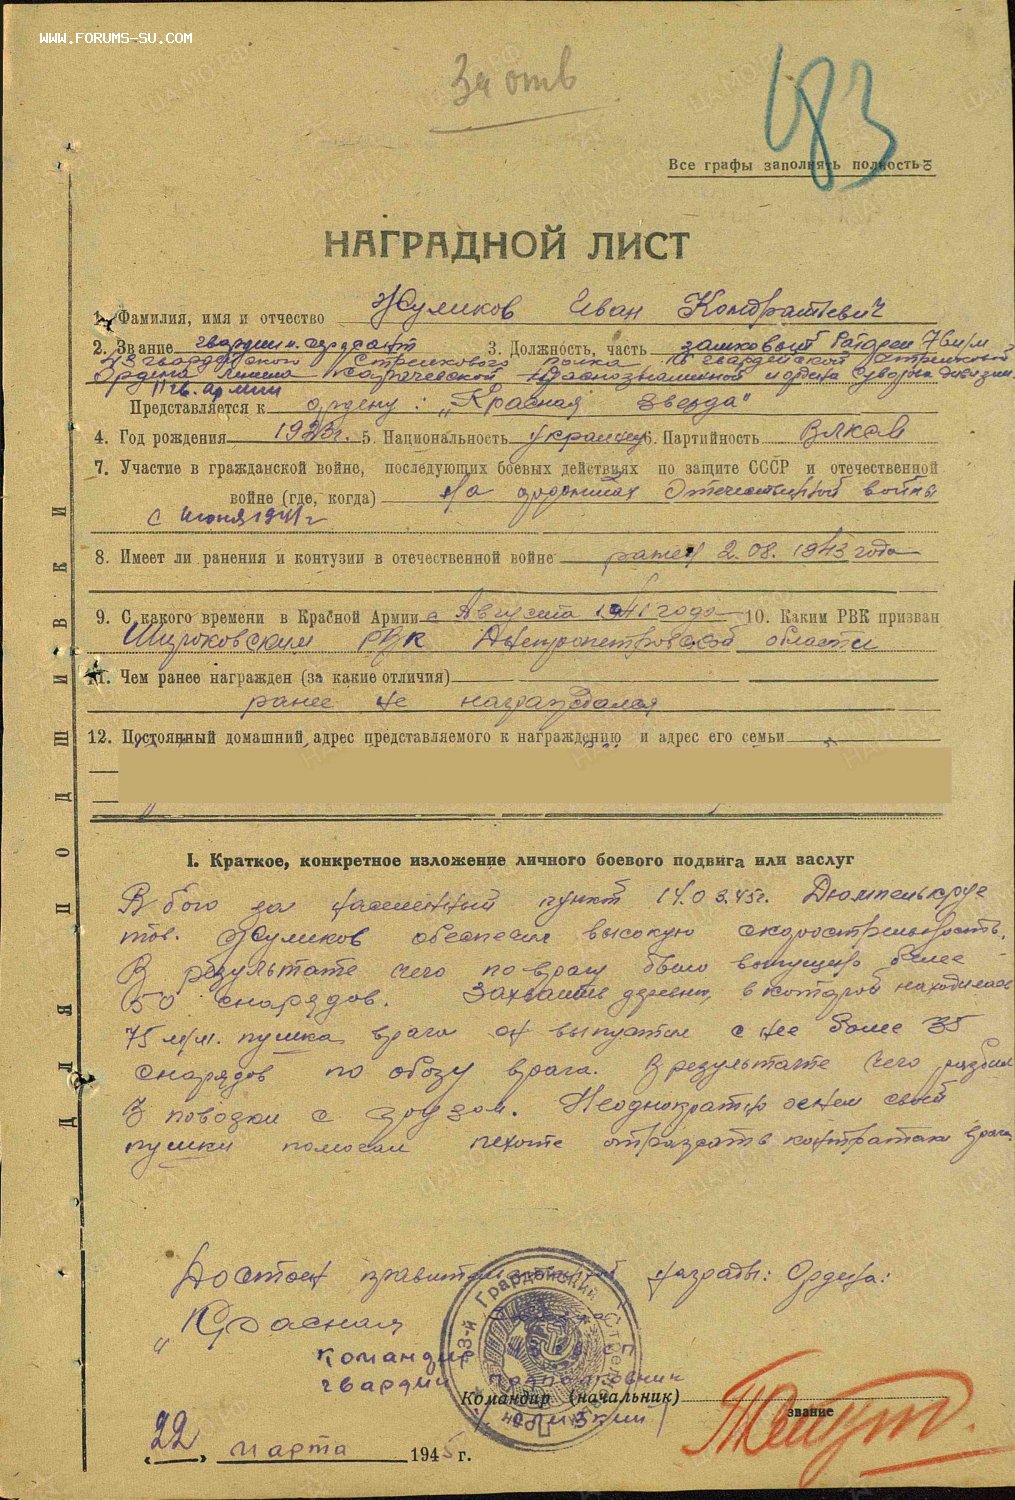 WWW.FORUMS-SU.COM
За отв
483
Все графы заполнять полностью
НАГРАДНОЙ ЛИСТ
1. Фамилия, имя и отчество Жуликов Иван Кондратьевич
2. Звание гвардии м. сержант 3. Должность, часть замковый батареи 76 м/м
43 гвардейского стрелкового полка 16 гвардейской стрелковой
Ордена Ленина Карачевской Краснознаменной и ордена Суворова дивизии
11 гв. армии
Представляется к ордену: „Красная Звезда"
4. Год рождения 1923г. 5. Национальность украинец 6. Партийность ВЛКСМ
7. Участие в гражданской войне, последующих боевых действиях по защите СССР и отечественной
войне (где, когда) На фронтах Отечественной войны
с июня 1941г
8. Имеет ли ранения и контузии в отечественной войне ранен 2.08.1943 года
9. С какого времени в Красной Армии с Августа 1941 года 10. Каким РВК призван
Широковским РВК Днепропетровской области
11. Чем ранее награжден (за какие отличия)
ранее не награждался
12. Постоянный домашний адрес представляемого к награждению и адрес его семьи
ДЛЯ ПОДШИВКИ
I. Краткое, конкретное изложение личного боевого подвига или заслуг
В бою за населенный пункт 14.03.45г.
тов. Жуликов обеспечил высокую скорострельность.
В результате чего по врагу было выпущено более
50 снарядов. Захватив деревню, в которой находилась
75 м/м. пушка врага он выпустил с нее более 35
снарядов по обозу врага. В результате чего разбил
3 повозки с грузом. Неоднократно огнем своей
пушки помогал пехоте отражать контратаки врага
Достоин правительственной награды: Ордена:
„Красная
Командир СП
гвардии подполковник
Командир (начальник)
звание
22 марта 1945 г.